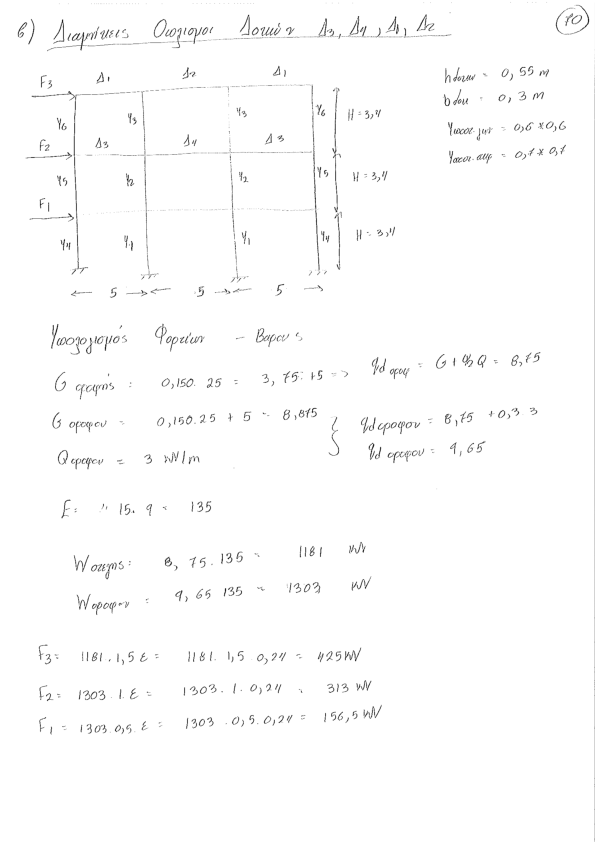 β) Διαμήκεις Οπλισμοί Δοκών Δ3, Δ4, Δ1, Δ2
10
F3 Δ1 Δ2 Δ1
h δοκων = 0,55 m
b δοκ = 0,3 m
Υ6 Υ3 Υ3 Υ6 H = 3,4
Υποστ. = 0,6 * 0,6
F2 Δ3 Δ4 Δ3
Υποστ. = 0,7 * 0,7
Υ5 Υ2 Υ2 Υ5 H = 3,4
F1
Υ4 Υ1 Υ1 Υ4 H = 3,4
5 5 5
Υπολογισμός Φορτίων - Βαρους
G οροφής : 0,150. 25 = 3,75 +5 => qd οροφ = G + ψ2Q = 8,75
G οροφου = 0,150.25 + 5 = 8,875
qd οροφου = 8,75 + 0,3 3
Q οροφου = 3 kN/m
qd οροφου = 9,65
E = 15. 9 = 135
W στεγης: 8,75.135 = 1181 kN
W οροφου = 9,65 135 = 1303 kN
F3 = 1181. 1,5 ε = 1181. 1,5 0,24 = 425 kN
F2 = 1303. 1. ε = 1303. 1. 0,24 = 313 kN
F1 = 1303.0,5. ε = 1303 .0,5.0,24 = 156,5 kN